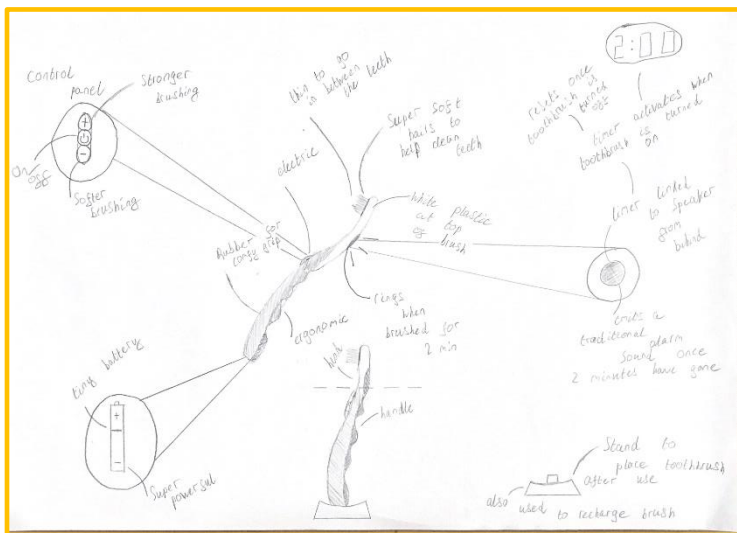 Control
panel
Stronger
brushing
+
-
On
off
Softer
brushing
thin to go
in between
the teeth
electric
Super soft
hairs to
help clean
teeth
white plastic
at top
of brush
Rubber for
comfy grip
ergonomic
rings
when
brushed for
2 min
2:00
resets once
toothbrush is
turned
off
timer activates when
toothbrush is turned
on
timer linked
to speaker
from
behind
emits a
traditional
alarm
sound once
2 minutes have gone
tiny battery
+
-
Super
powerful
head
handle
Stand to
place toothbrush
after use
also used to recharge brush